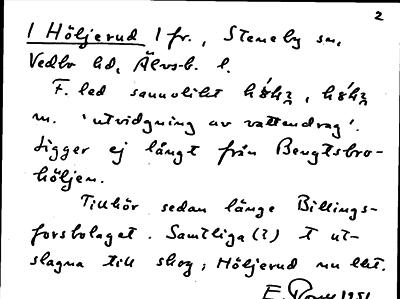 2
1 Höljerud 1 fr., Steneby sn,
Vedbo hd, Älvsb. l.
F. led sannolikt
m. 'utvidgning av vattendrag'.
Ligger ej långt från Bengtsbro-
höljen.
Tillhör sedan länge Billings-
forsbolaget. Samtliga (?) T ut-
slagna till skog; Höljerud nu lht.
E. 1951